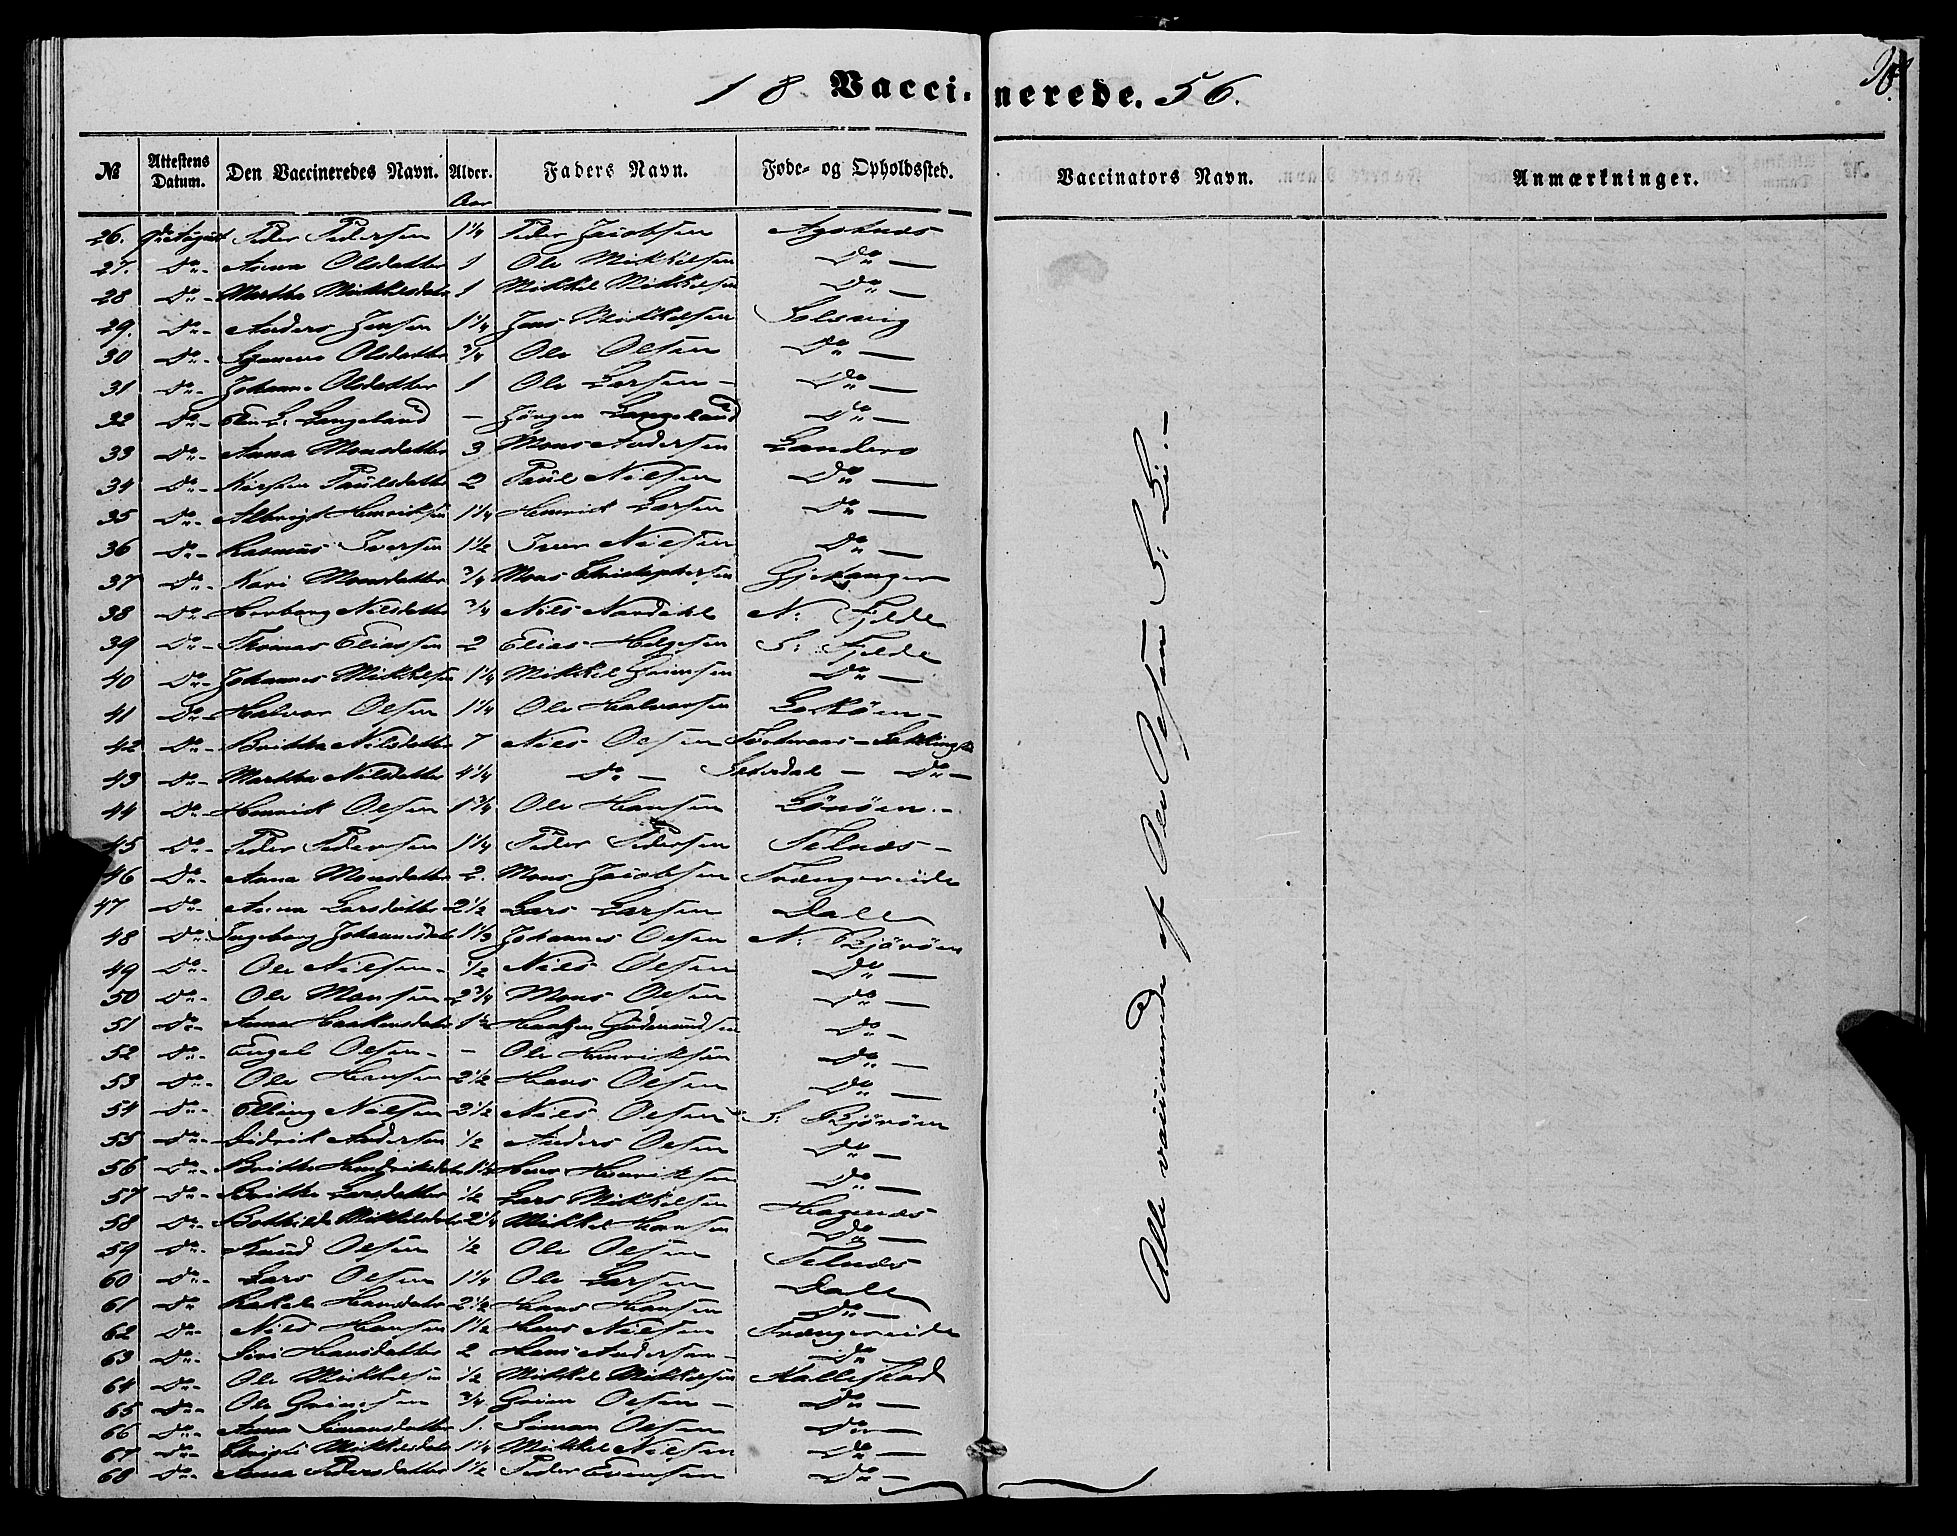 18 Vaccinerede. 56.
№ Attestens Datum. Den Vaccineredes Navn. Alder. Aar Faders Navn. Føde- og Opholdssted. Vaccinators Navn. Anmærkninger.
26. Peder Pedersen 1¼ Peder Jacobsen Agotnæs
27. Do Anna Olsdatter 1 Ole Mikkelsen Do —
28 Do Martha Mikkelsdatr 1 Mikkel Mikkelsen Do —
29. Do Anders Jensen 1¼ Jens Mikkelsen Solsvig
30 Do Olsdatter ¾ Ole Olsen Do —
31 Do Johanne Olsdatter 1 Ole Larsen — Do —
32 Do Elen L: Langeland — Jörgen Langeland Do —
33 Do Anna Monsdatter 3 Mons Andersen Landero
34 Do Kirsten Paulsdatter 2 Paul Nilsen Do —
35 Do Albrigt Henriksen 1¼ Henrik Larsen Do —
36 Do Rasmus Iversen 1½ Iver Nilsen Do —
37 Do Kari Monsdatter ¾ Mons Christophersen Gjekanger
38 Do Herborg Nilsdatter ¾ Nils N: Fjelde
39 Do Thomas Eliassen 2 Elias Helgesen S: Fjelde
40 Do Johannes Mikkelsen 1¼ Mikkel Grimsen Do —
41 Do Halvor Olsen 1¼ Ole Halvorsen Lokøen —
42 Do Britha Nilsdatter 7 Nils Olsen
43 Do Martha Nilsdatter 4¼ Do — Do —
44 Do Henrik Olsen 1¾ Ole Hansen Lönöen —
45 Do Peder Pedersen 1¼ Peder Pedersen Telnæs —
46 Do Anna Monsdatter 2. Mons Jacobsen Trængereide
47 Do Anna Larsdatter 2½ Lars Larsen Dale
48 Do Ingeborg Johannesdatr 1⅓ Johannes Olsen N: Björöen
49 Do Ole Nilsen ½ Nils Olsen Do —
50 Do Ole Monsen 2¾ Mons Olsen Do —
51 Do Anna Haakensdatr 1½ Haaken Gudmundsen Do —
52 Do Engel Olsen — — Ole Henriksen Do —
53 Do Ole Hansen 2½ Hans Olsen Do —
54 Do Elling Nilsen 2½ Nils Olsen S. Björöen
55 Do Didrik Andersen ½ Anders Olsen Do —
56 Do Britha Henriksen Do —
57 Do Britha Larsdatter ½ Lars Mikkelsen Hagenæs
58 Do Bothilde Mikkelsdatr 2¼ Mikkel Hansen Do —
59 Do Knud Olsen ½ Ole Olsen Telnæs
60 Do Lars Olsen 1¼ Ole Larsen Dale
61 Do Rakel Hansdatr 2½ Hans Hansen Do —
62 Do Nils Hansen 1½ Hans Nilsen Trængereide
63 Do Siri Hansdatter 2 Hans Andersen — Do
64 Do Ole Mikkelsen ½ Mikkel Mikkelsen Kallestad
65 Do Ole Grimsen ¾ Grim Olsen — Do —
66 Do Anna Simonsdatter 1. Simon Olsen Do —
67 Do Mikkelsdatr 1¼ Mikkel Nilsen Do —
68 Do Anna Pedersdatter 1½ Peder Evensen Do —
Alle vaccinerede af Ole Olsen S: Li. —